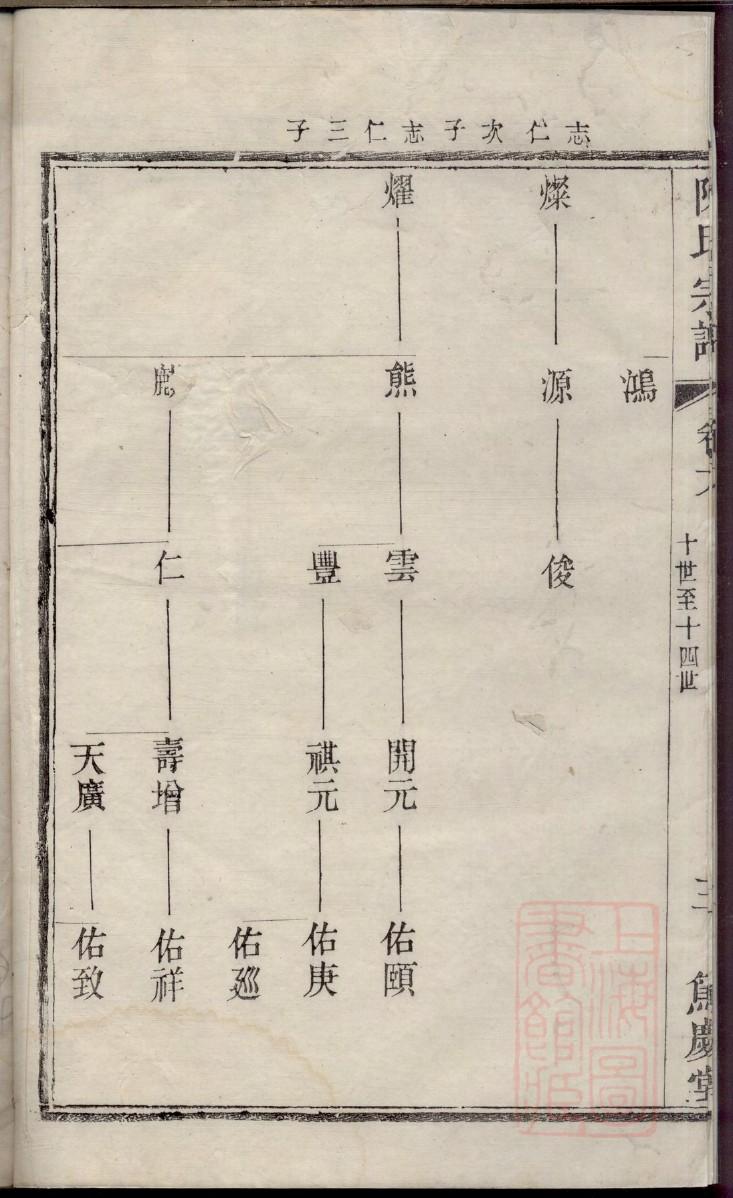 志仁次子
志仁三子
陳氏宗譜
卷六
十世至十四世
三
慶堂
鴻
燦
源
俊
燿
熊
雲
開元
佑頤
豐
祺元
佑庚
佑廵
仁
壽增
佑祥
天廣
佑致
上海圖書館藏